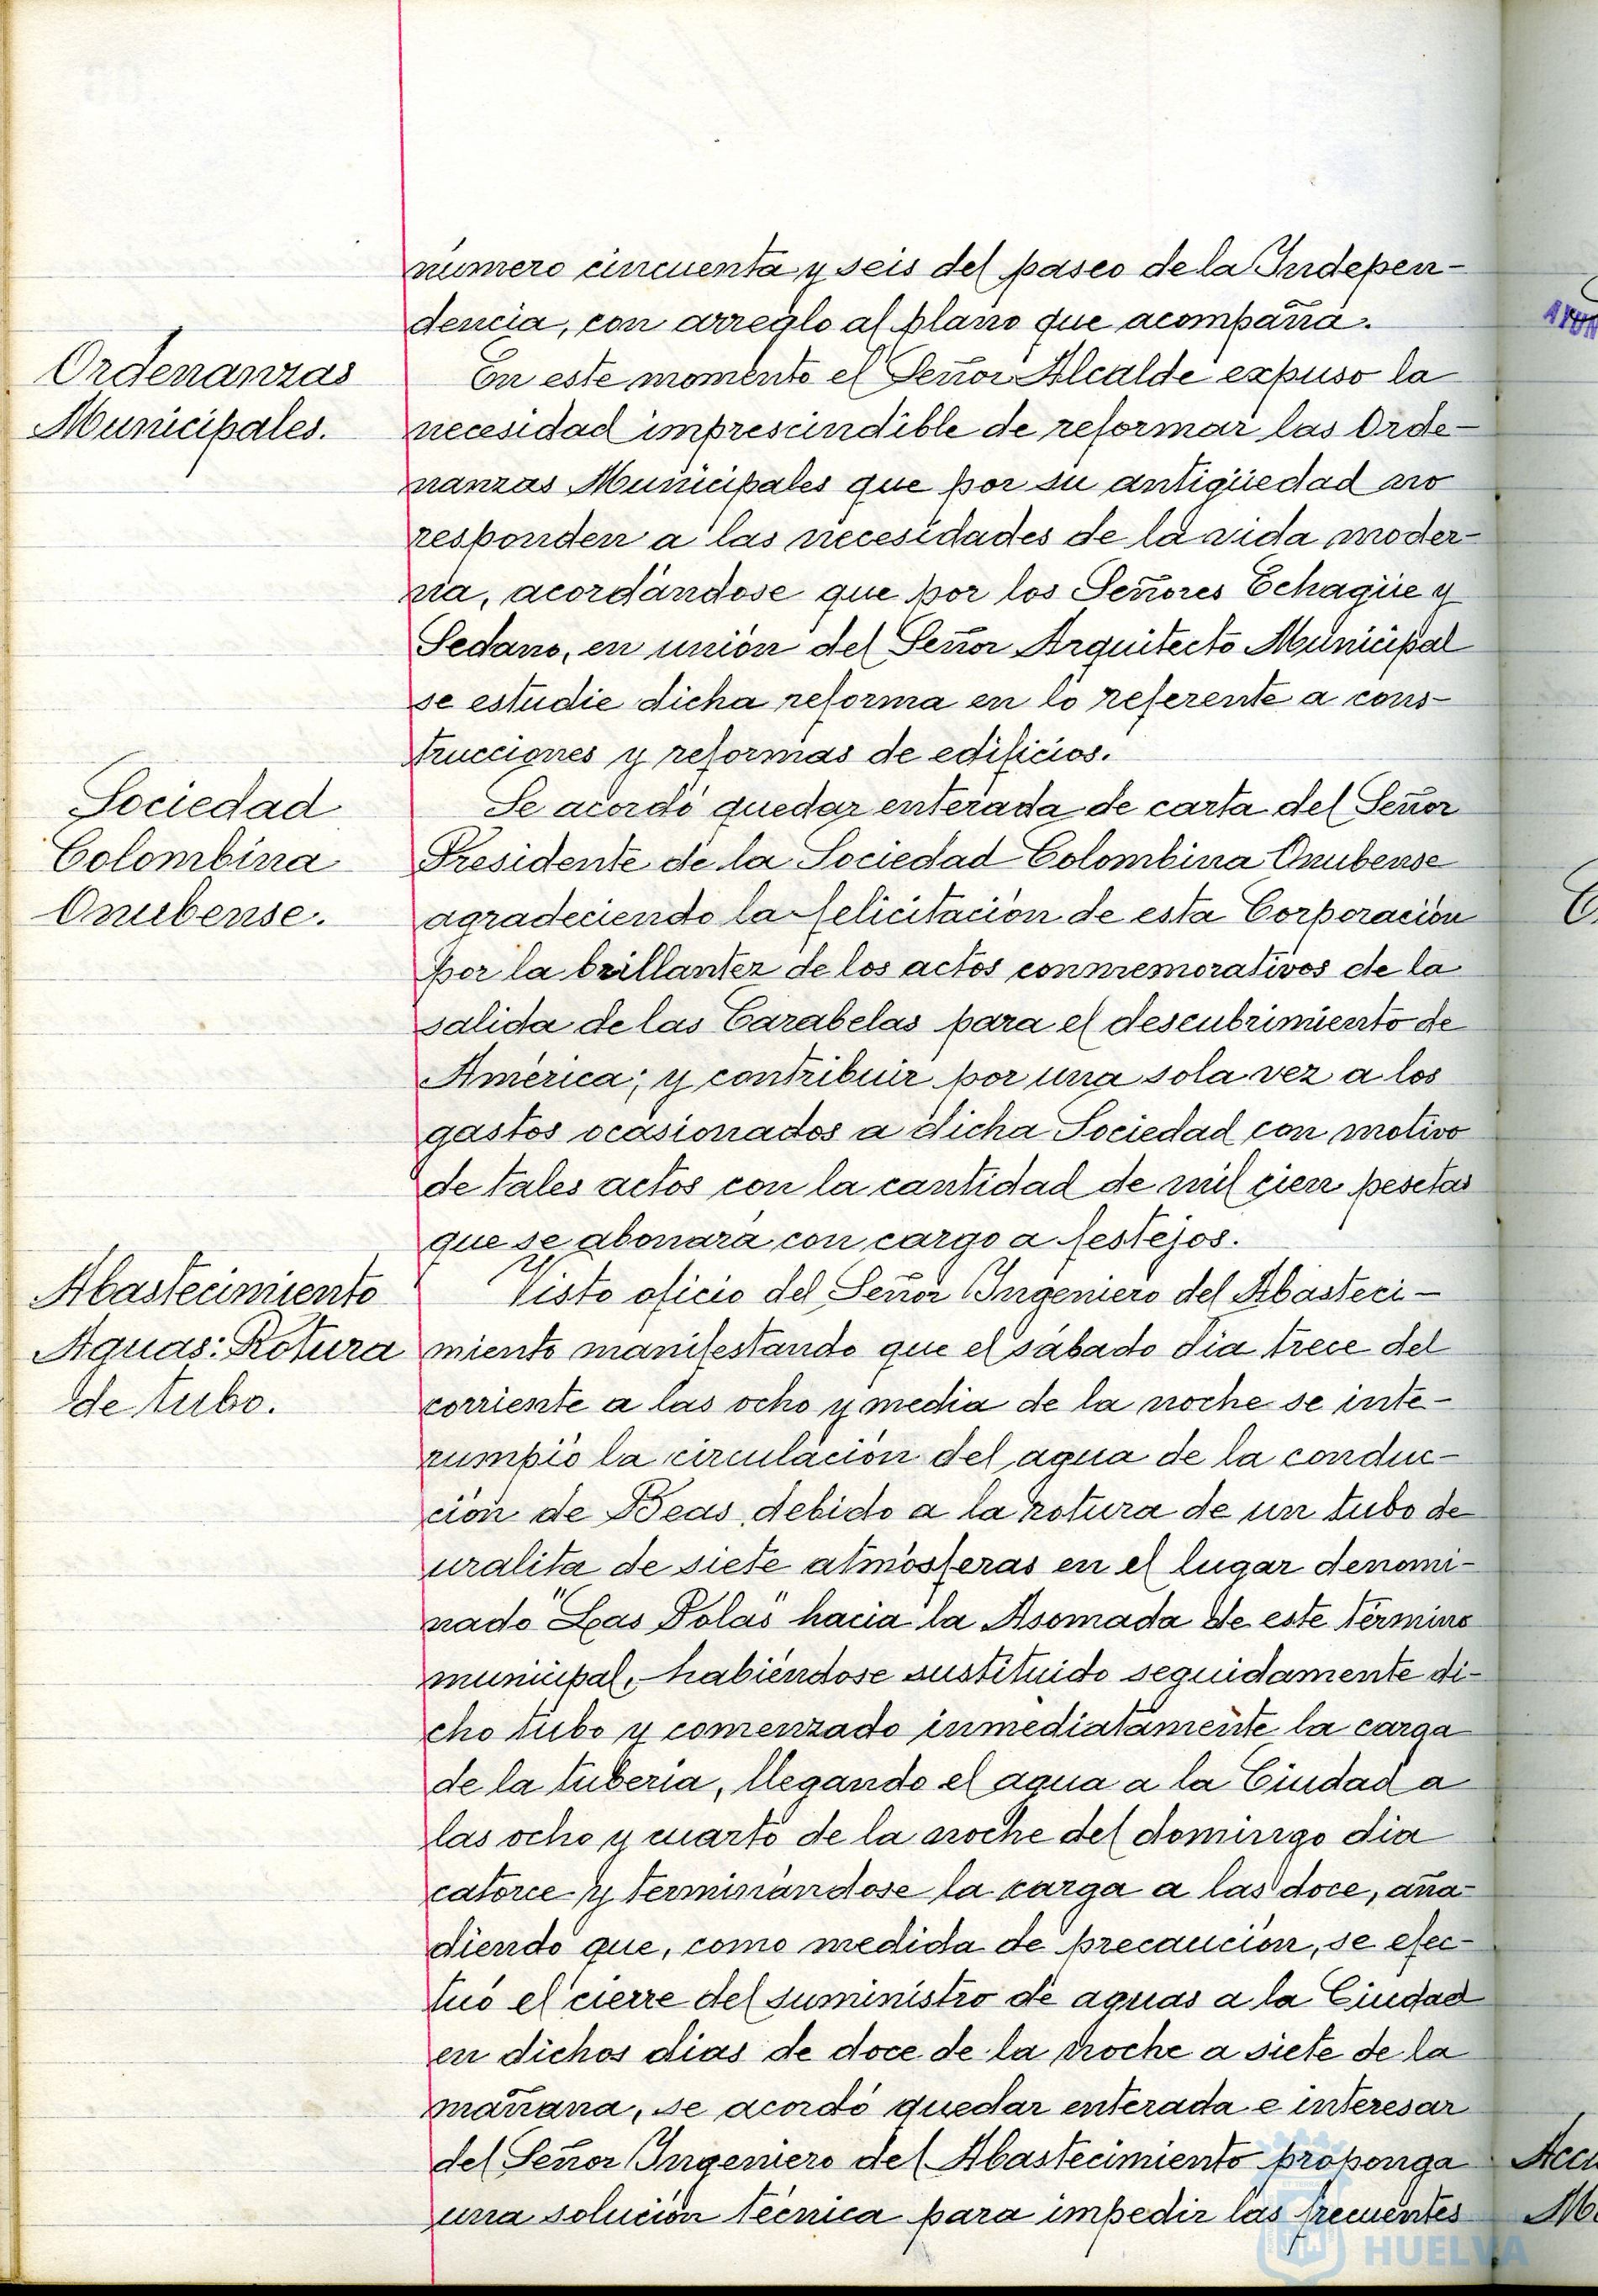 número cincuenta y seis del paseo de la Indepen-
dencia, con arreglo al plano que acompaña.
Ordenanzas
Municipales.
En este momento el Señor Alcalde expuso la
necesidad imprescindible de reformar las Orde-
nanzas Municipales que por su antigüedad no
responden a las necesidades de la vida moder-
na, acordándose que por los Señores Echagüe y
Sedano, en unión del Señor Arquitecto Municipal
se estudie dicha reforma en lo referente a cons-
trucciones y reformas de edificios.
Sociedad
Colombina
Onubense.
Se acordó quedar enterada de carta del Señor
Presidente de la Sociedad Colombina Onubense
agradeciendo la felicitación de esta Corporación
por la brillantez de los actos conmemorativos de la
salida de las Carabelas para el descubrimiento de
América; y contribuir por una sola vez a los
gastos ocasionados a dicha Sociedad con motivo
de tales actos con la cantidad de mil cien pesetas
que se abonará con cargo a festejos.
Abastecimiento
Aguas: Rotura
de tubo.
Visto oficio del Señor Ingeniero del Abasteci-
miento manifestando que el sábado día trece del
corriente a las ocho y media de la noche se inte-
rumpió la circulación del agua de la conduc-
ción de Beas debido a la rotura de un tubo de
uralita de siete atmósferas en el lugar denomi-
nado "Las Polas" hacia la Asomada de este término
municipal, habiéndose sustituido seguidamente di-
cho tubo y comenzado inmediatamente la carga
de la tubería, llegando el agua a la Ciudad a
las ocho y cuarto de la noche del domingo dia
catorce y terminándose la carga a las doce, aña-
diendo que, como medida de precaución, se efec-
tuó el cierre del suministro de aguas a la Ciudad
en dichos dias de doce de la noche a siete de la
mañana, se acordó quedar enterada e interesar
del Señor Ingeniero del Abastecimiento proponga
una solución técnica para impedir las frecuentes
HUELVA